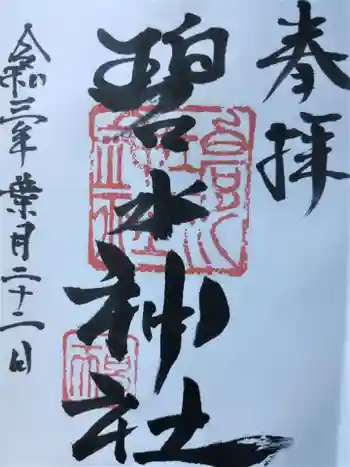 奉拝
碧水神社
令和三年葉月二十二日